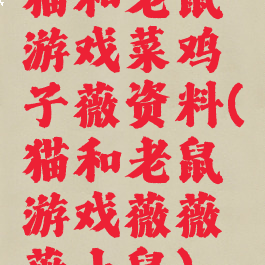 猫和老鼠
游戏菜鸡
子薇资料(
猫和老鼠
游戏薇薇
薇小鼠)